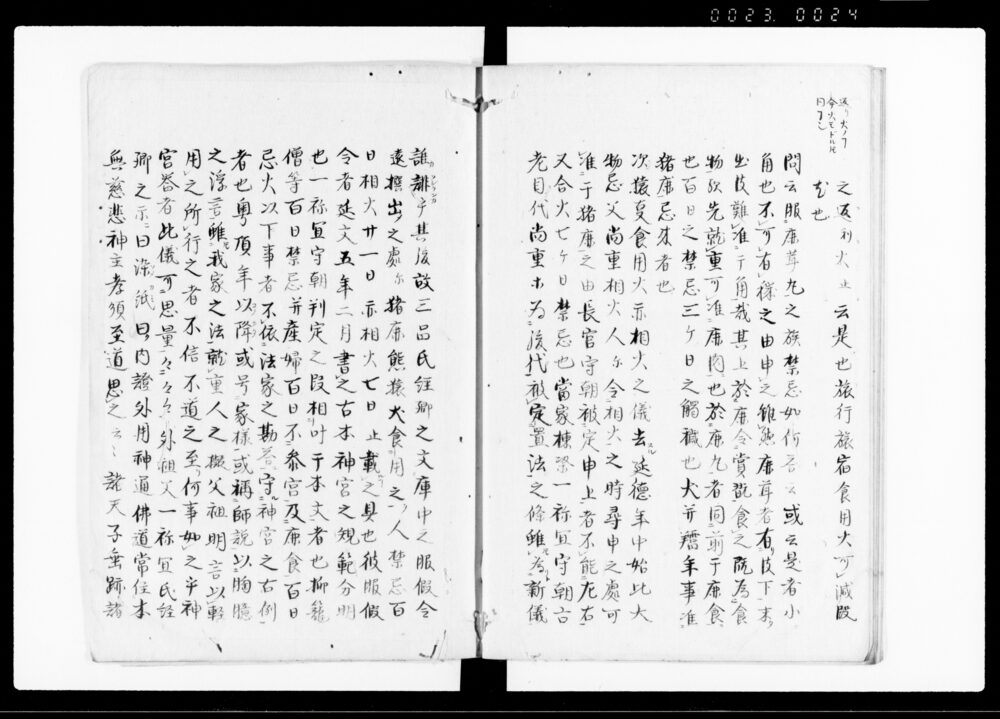 0023. 0024
返リ火ノ事
合火モドル也
同事也
之返利火止云是也旅行旅宿食用火可減殴
乞也
問云服鹿茸丸之族禁忌如何答云或云是者小
角也不可有様之由申之雖然鹿茸者有皮下末
出皮難准于角哉其上於鹿令賞翫食之既為食
物歟先就重可准鹿肉也於鹿丸者同前于鹿食
也百日之禁忌三ケ日之觸穢也犬并羶羊事准
猪鹿忌来者也
次猿変食用火亦相火之儀去延徳年中始比大
物忌父尚重相火人尓令相火之時尋申之處可
准于猪鹿之由長官守朝被定申上者不能左右
又合火七ケ日禁忌也當家棟梁一祢宜守朝古
老目代尚重等為後代被定置法之條雖為新儀
誰誹乎其後故三品氏経卿之文庫中之服假令
遠撰出之處尓猪鹿熊猿犬食用之人禁忌百
日相火廿一日亦相火七日止載之具也彼服假
令者延文五年二月書之古本神宮之規範分明
也一祢宜守朝判定之段相叶于本文者也抑籠
僧等百日禁忌并産婦百日不参宮及鹿食百日
忌火以下事者不依法家之勘答守神宮之古例
者也粤頃年以降或号家様或稱師説以胸臆
之浮言雖我家之法就重人之擬父祖明言以軽
用之所行之者不信不道之至何事如之乎神
宮答者此儀可思量々々々外祖父一祢宜氏経
卿之示曰染紙曰内證外用神通佛道常住本
無慈悲神主孝須至道思之云々諸天子垂跡諸